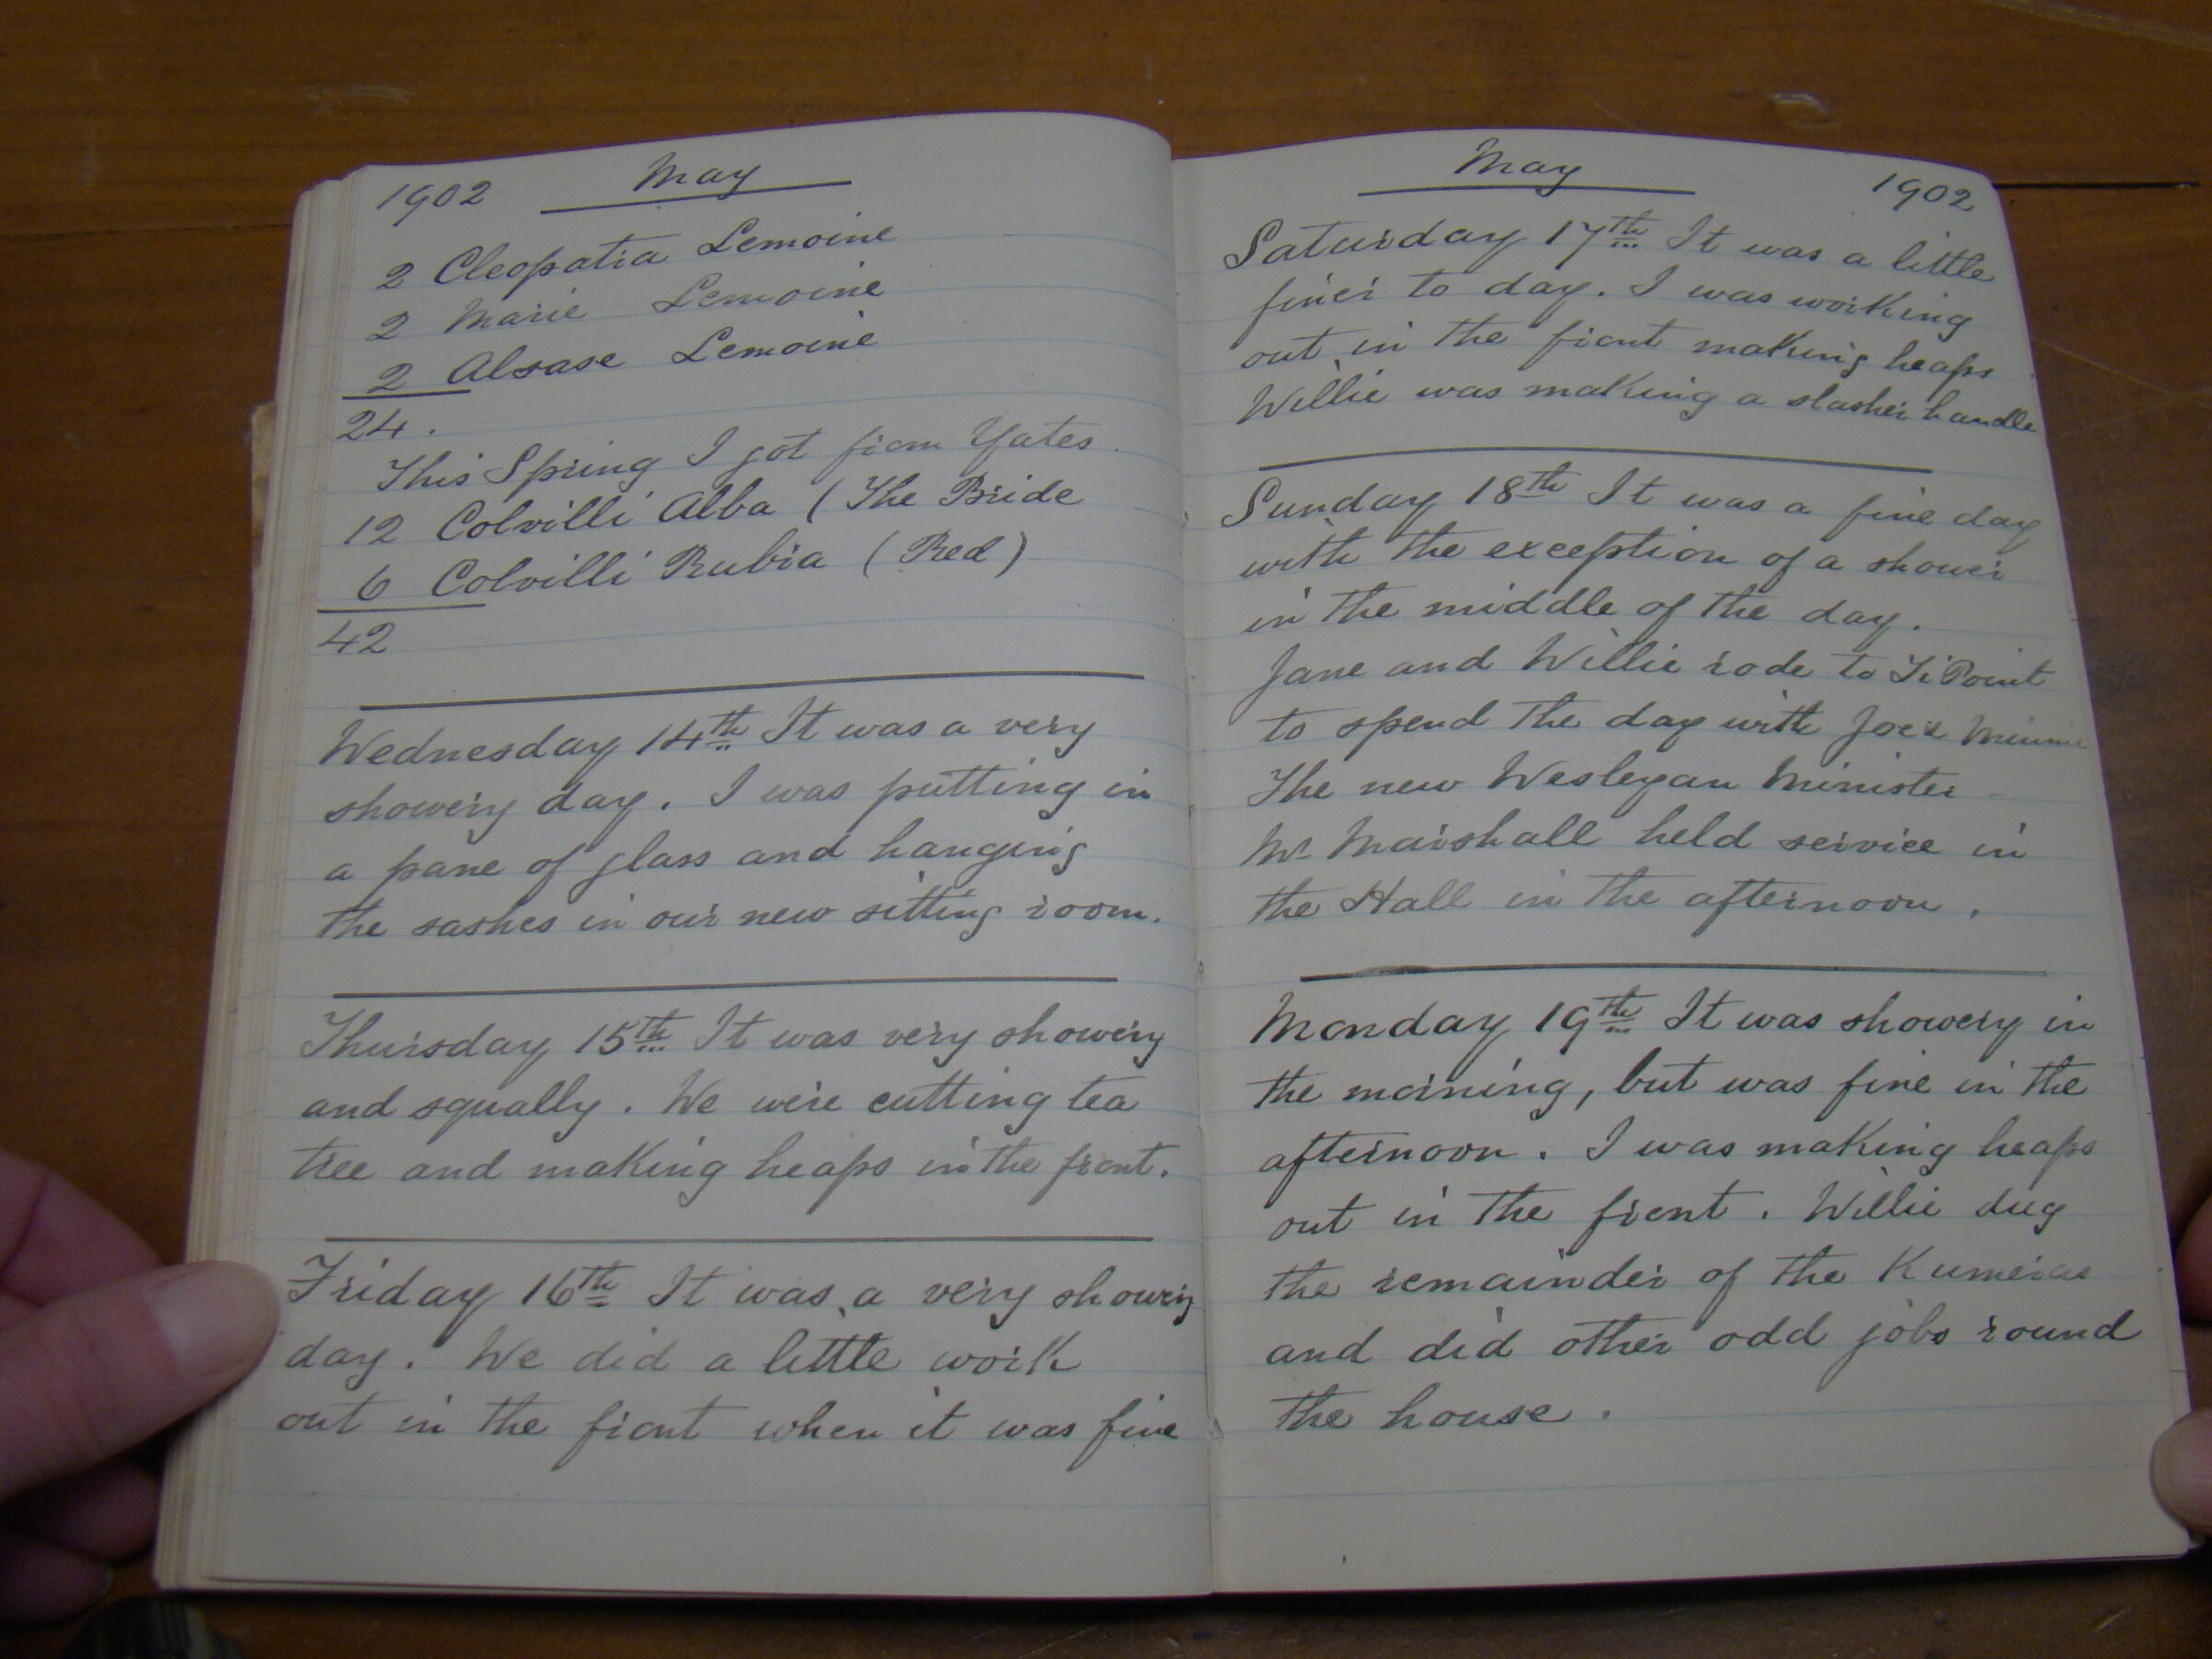 1902 May
2 Cleopatra Lemoine
2 Marie Lemoine
2 Alsase Lemoine
24.
This Spring I got from Yates
12 Colvilli Alba (The Bride
6 Colvilli Rubra (Red)
42
Wednesday 14th It was a very
showery day. I was putting in
a pane of glass and hanging
the sashes in our new sitting room.
Thursday 15th It was very showery
and squally. We were cutting tea
tree and making heaps in the front.
Friday 16th It was a very showery
day. We did a little work
out in the front when it was fine
May 1902
Saturday 17th It was a little
finer to day. I was working
out in the front making heaps
Willie was making a slasher handle
Sunday 18th It was a fine day
with the exception of a shower
in the middle of the day.
Jane and Willie rode to Ti Point
to spend the day with Joe & Minnie
The new Wesleyan Minister
Mr Marshall held service in
the Hall in the afternoon.
Monday 19th It was showery in
the morning, but was fine in the
afternoon. I was making heaps
out in the front. Willie dug
the remainder of the Kumeras
and did other odd jobs round
the house.